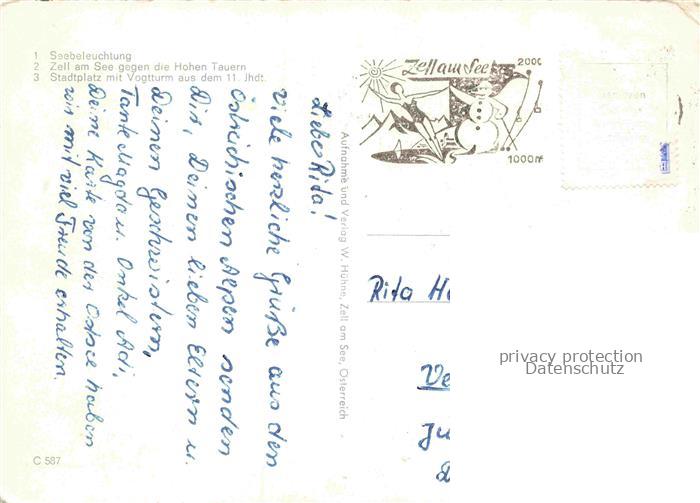 1 Seebeleuchtung
2 Zell am See gegen die Hohen Tauern
3 Stadtplatz mit Vogtturm aus dem 11. Jhdt.
Liebe Rita!
Viele herzliche Grüße aus den
Östreichischen Alpen senden
Dir, Deinen lieben Eltern u.
Deinen Geschwistern,
Tante Magda u. Onkel Adi.
Deine Karte von der Ostsee haben
wir mit viel Freude erhalten.
Aufnahme und Verlag W. Hühne, Zell am See, Österreich
C 587
Zell am See
2000
1000m
Rita H
Ve
Ju
privacy protection
Datenschutz